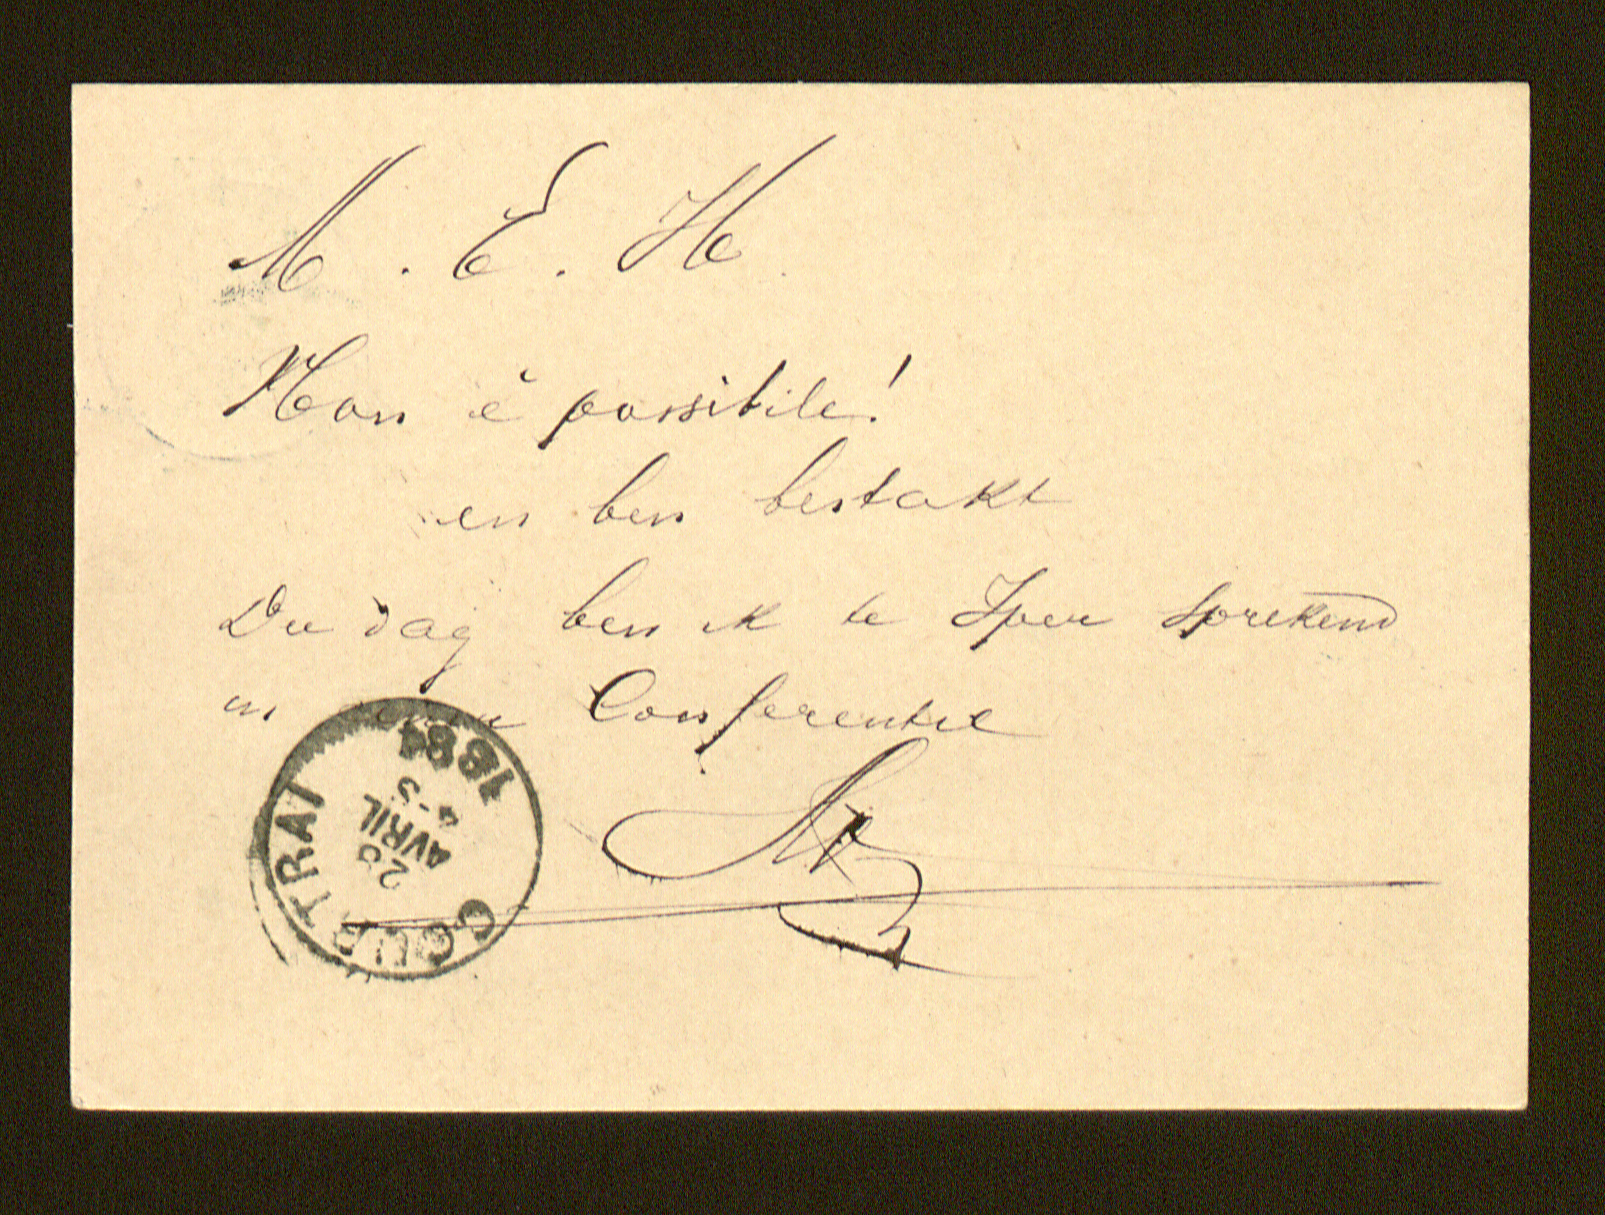 M. E. H.
Non è possibile!
en ben bestakt
Die dag ben ik te Iper sprekend
in Conferentie
COURTRAI
AVRIL
4-5
1884